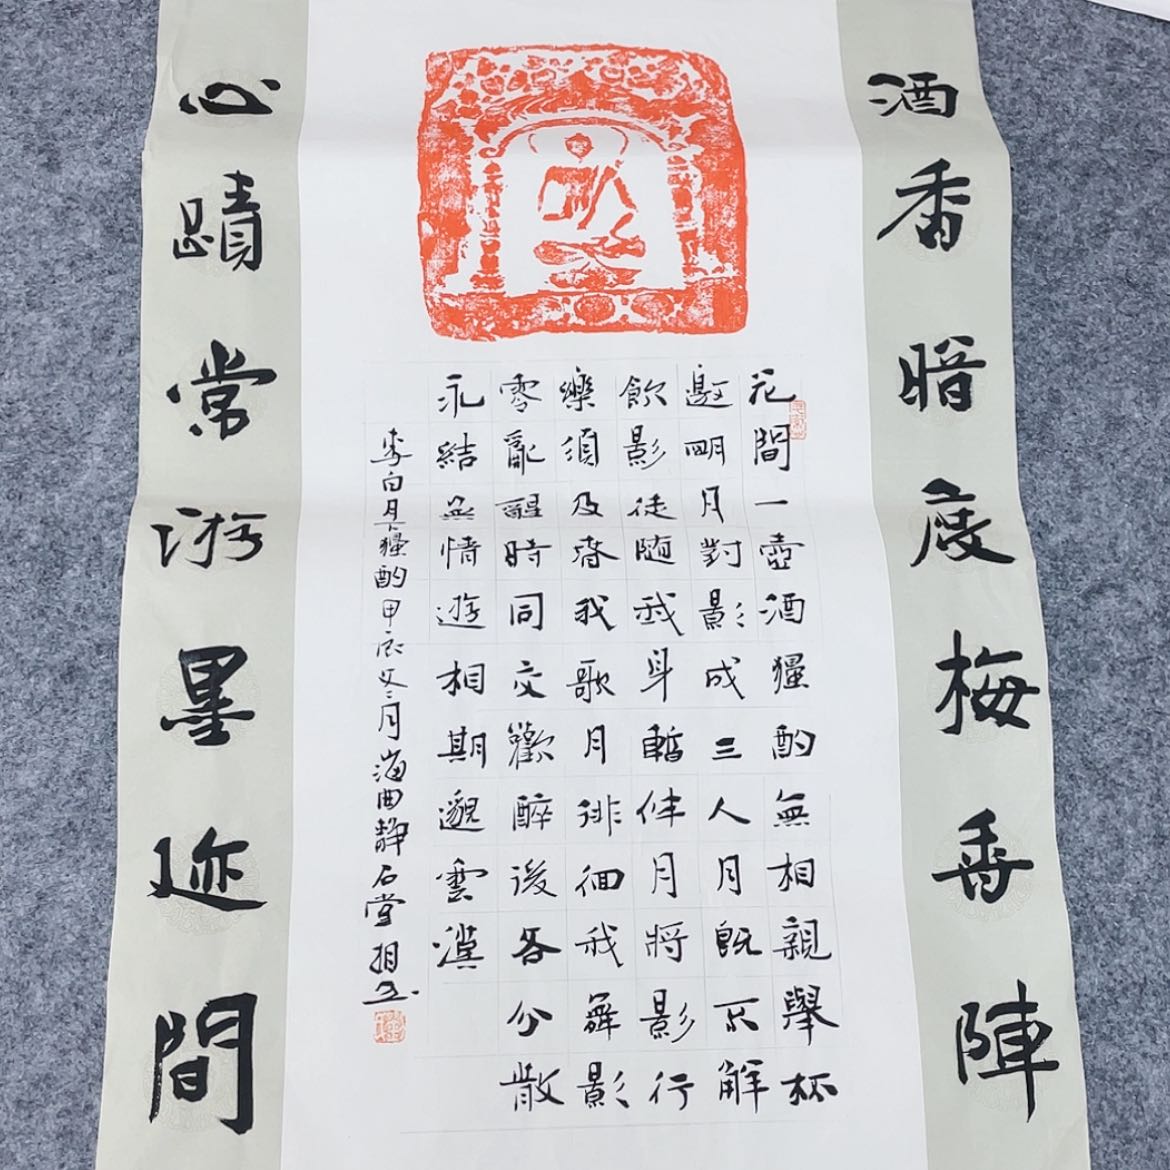 酒香暗度梅香陣
花間一壺酒獨酌無相親舉杯
邀明月對影成三人月既不解
飲影徒随我身暫伴月將影行
樂須及春我歌月徘徊我舞影
零亂醒時同交歡醉後各分散
永結無情遊相期邈雲漢
李白月下獨酌甲辰又二月海曲靜石堂
心蹟常游墨迹間